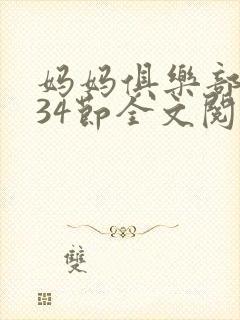 妈妈俱樂部
34節全文閱
雙